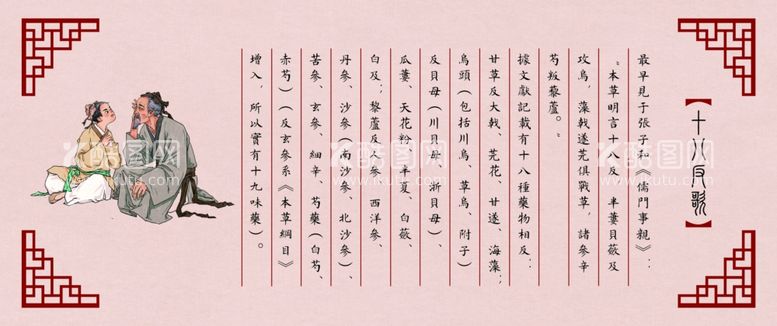 【十八反歌】
最早見于張子和《儒門事親》：
“本草明言十八反，半蔞貝蘞及
攻烏，藻戟遂芫俱戰草，諸參辛
芍叛藜蘆。”
據文獻記載有十八種藥物相反：
甘草反大戟、芫花、甘遂、海藻；
烏頭（包括川烏、草烏、附子）
反貝母（川貝母、浙貝母）、
瓜蔞、天花粉、半夏、白蘞、
白及；藜蘆反人參、西洋參、
丹參、沙參（南沙參、北沙參）、
苦參、玄參、細辛、芍藥（白芍、
赤芍）（反玄參系《本草綱目》
增入，所以實有十九味藥）。